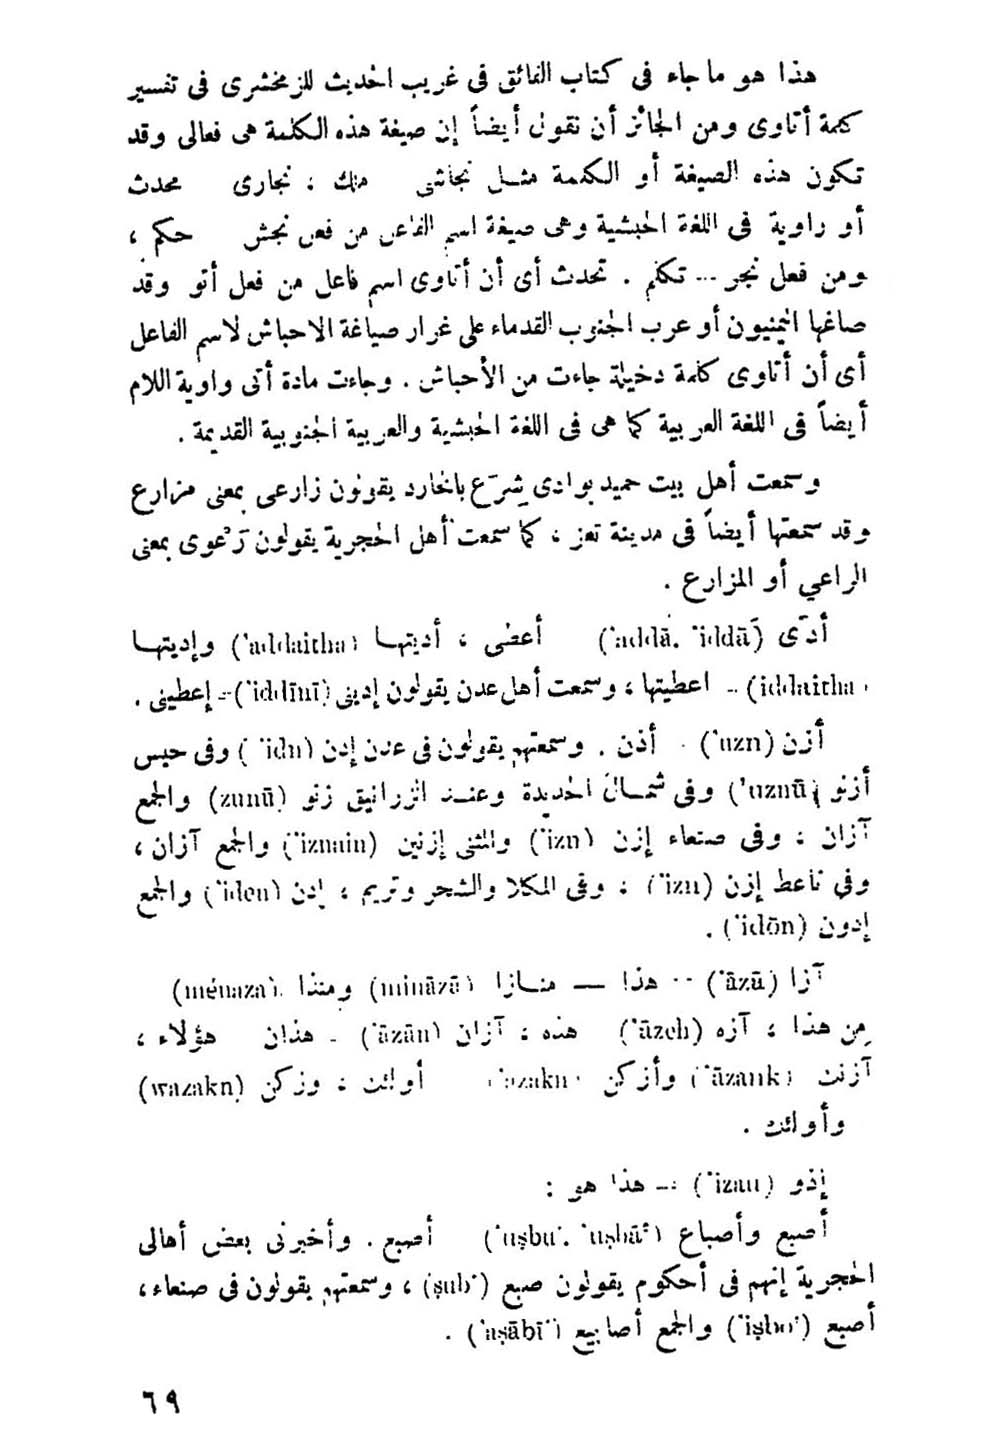 هذا هو ما جاء فى كتاب الفائق فى غريب الحديث للزمخشرى فى تفسير
كلمة أتاوى ومن الجائز أن نقول أيضاً إن صيغة هذه الكلمة هى فعالى وقد
تكون هذه الصيغة أو الكلمة مثل نجاشى ملك ؛ نجارى محدث
أو راوية فى اللغة الحبشية وهى صيغة اسم الفاعل من فعل نجش حكم ،
ومن فعل نجر -- تكلم . تحدث أى أن أتاوى اسم فاعل من فعل أتو وقد
صاغها اليمنيون أو عرب الجنوب القدماء على غرار صياغة الاحباش لاسم الفاعل
أى أن أتاوى كلمة دخيلة جاءت من الأحباش . وجاءت مادة أتى واوية اللام
أيضاً فى اللغة العربية كما هى فى اللغة الحبشية والعربية الجنوبية القديمة .
وسمعت أهل بيت حميد بوادى شِرَع بالخارد يقولون زارعى بمعنى مزارع
وقد سمعتها أيضاً فى مدينة تعز ، كما سمعت أهل الحجرية يقولون رَعوى بمعنى
الراعي أو المزارع .
أدّى ('addā. 'iddā) أعطى ، أديتها ('addaitha) وإديتها
('iddaitha) -- اعطيتها ، وسمعت أهل عدن يقولون إدينى ('iddīnī) -- إعطينى .
أزن ('uzn) - أذن . وسمعتهم يقولون فى عدن إدن ('idn) وفى حيس
أزنو ('uznū) وفى شمال الحديدة وعند الزرانيق زنو (zunū) والجمع
آزان ؛ وفى صنعاء إزن ('izn) والمثنى إزنين ('iznain) والجمع آزان ،
وفي ناعط إزن ('izn) ؛ وفى المكلا والشحر وتريم ، إدن ('iden) والجمع
إدون ('idōn) .
آزا ('āzā) -- هذا — منازا (mināzā) ومنذا (ménaza)
مِن هذا ؛ آزه ('āzeh) هذه ؛ آزان ('āzān) - هذان هؤلاء ،
آزنك ('āzank) وأزكن ('azakn) أولئك ؛ وزكن (wazakn)
وأولئك .
إذو ('izau) -- هذا هو :
أصبع وأصباع ('uṣbu'. 'uṣbā') أصبع . وأخبرنى بعض أهالى
الحجرية إنهم فى أحكوم يقولون صبع (ṣub') ، وسمعتهم يقولون فى صنعاء ،
أصبع ('iṣbo') والجمع أصابيع ('aṣābī') .
٦٩